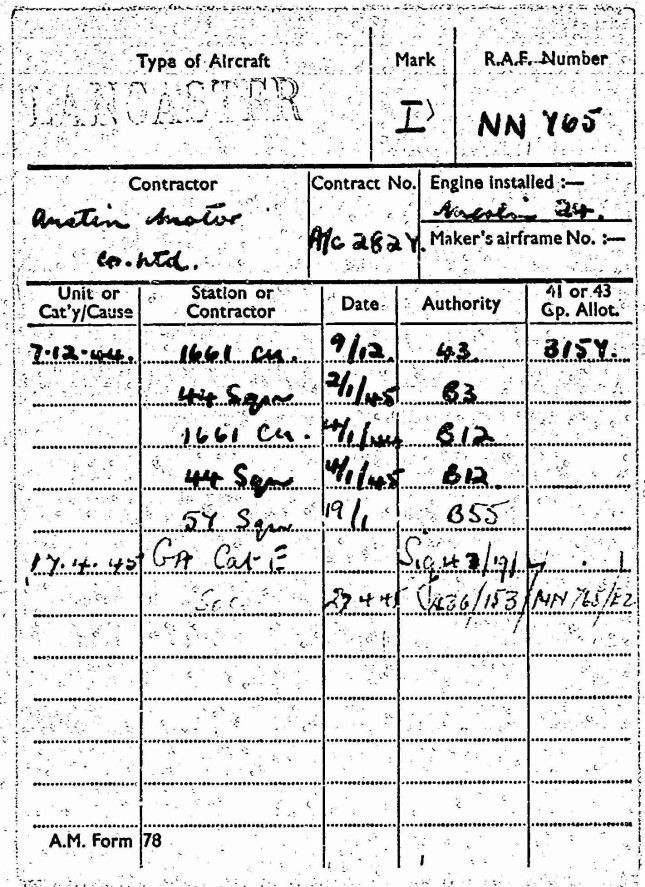 Type of Aircraft Mark R.A.F. Number
LANCASTER I NN 765
Contractor Contract No. Engine installed :—
Austin Motor Merlin 24.
Co. Ltd. A/C 2827. Maker's airframe No. :—
Unit or Cat'y/Cause Station or Contractor Date Authority 41 or 43 Gp. Allot.
7.12.44. 1661 Cu. 9/12. 43. 3157.
44 Sqdn 2/1/45 B3
1661 Cu. 4/1/44 B12
44 Sqdn 4/1/45 B12
57 Sqdn 19/1 B55
17.4.45 GA Cat E Sig
Soc 27 4 45 436/153/NN 765/E2
A.M. Form 78